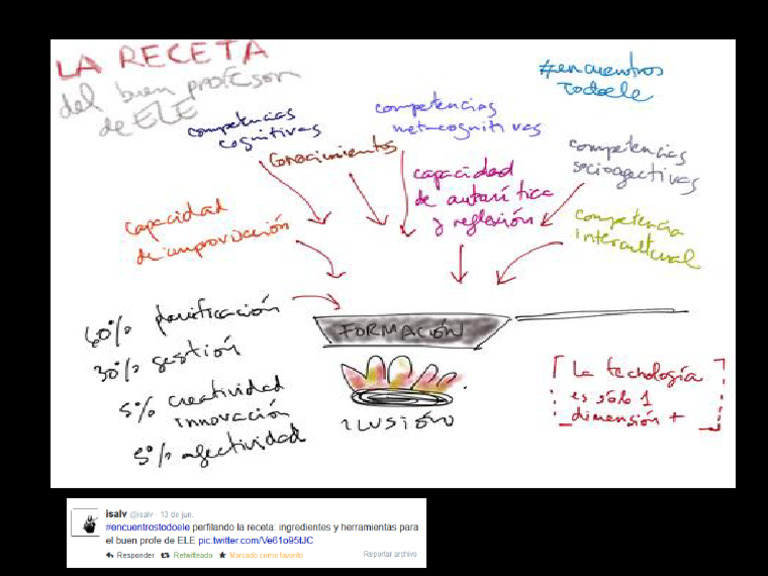 LA RECETA
del buen profesor
de ELE
#encuentros
todoele
competencias
cognitivas
conocimientos
competencias
metacognitivas
capacidad
de autocrítica
y reflexión
competencias
socioafectivas
capacidad
de improvisación
competencia
intercultural
60% planificación
30% gestión
5% creatividad
innovación
5% afectividad
FORMACIÓN
ILUSIÓN
La tecnología
es sólo 1
dimensión +
isalv @isalv · 13 de jun.
#encuentrostodoele perfilando la receta: ingredientes y herramientas para
el buen profe de ELE pic.twitter.com/Ve61o95tJC
Responder Retwitteado Marcado como favorito Reportar archivo